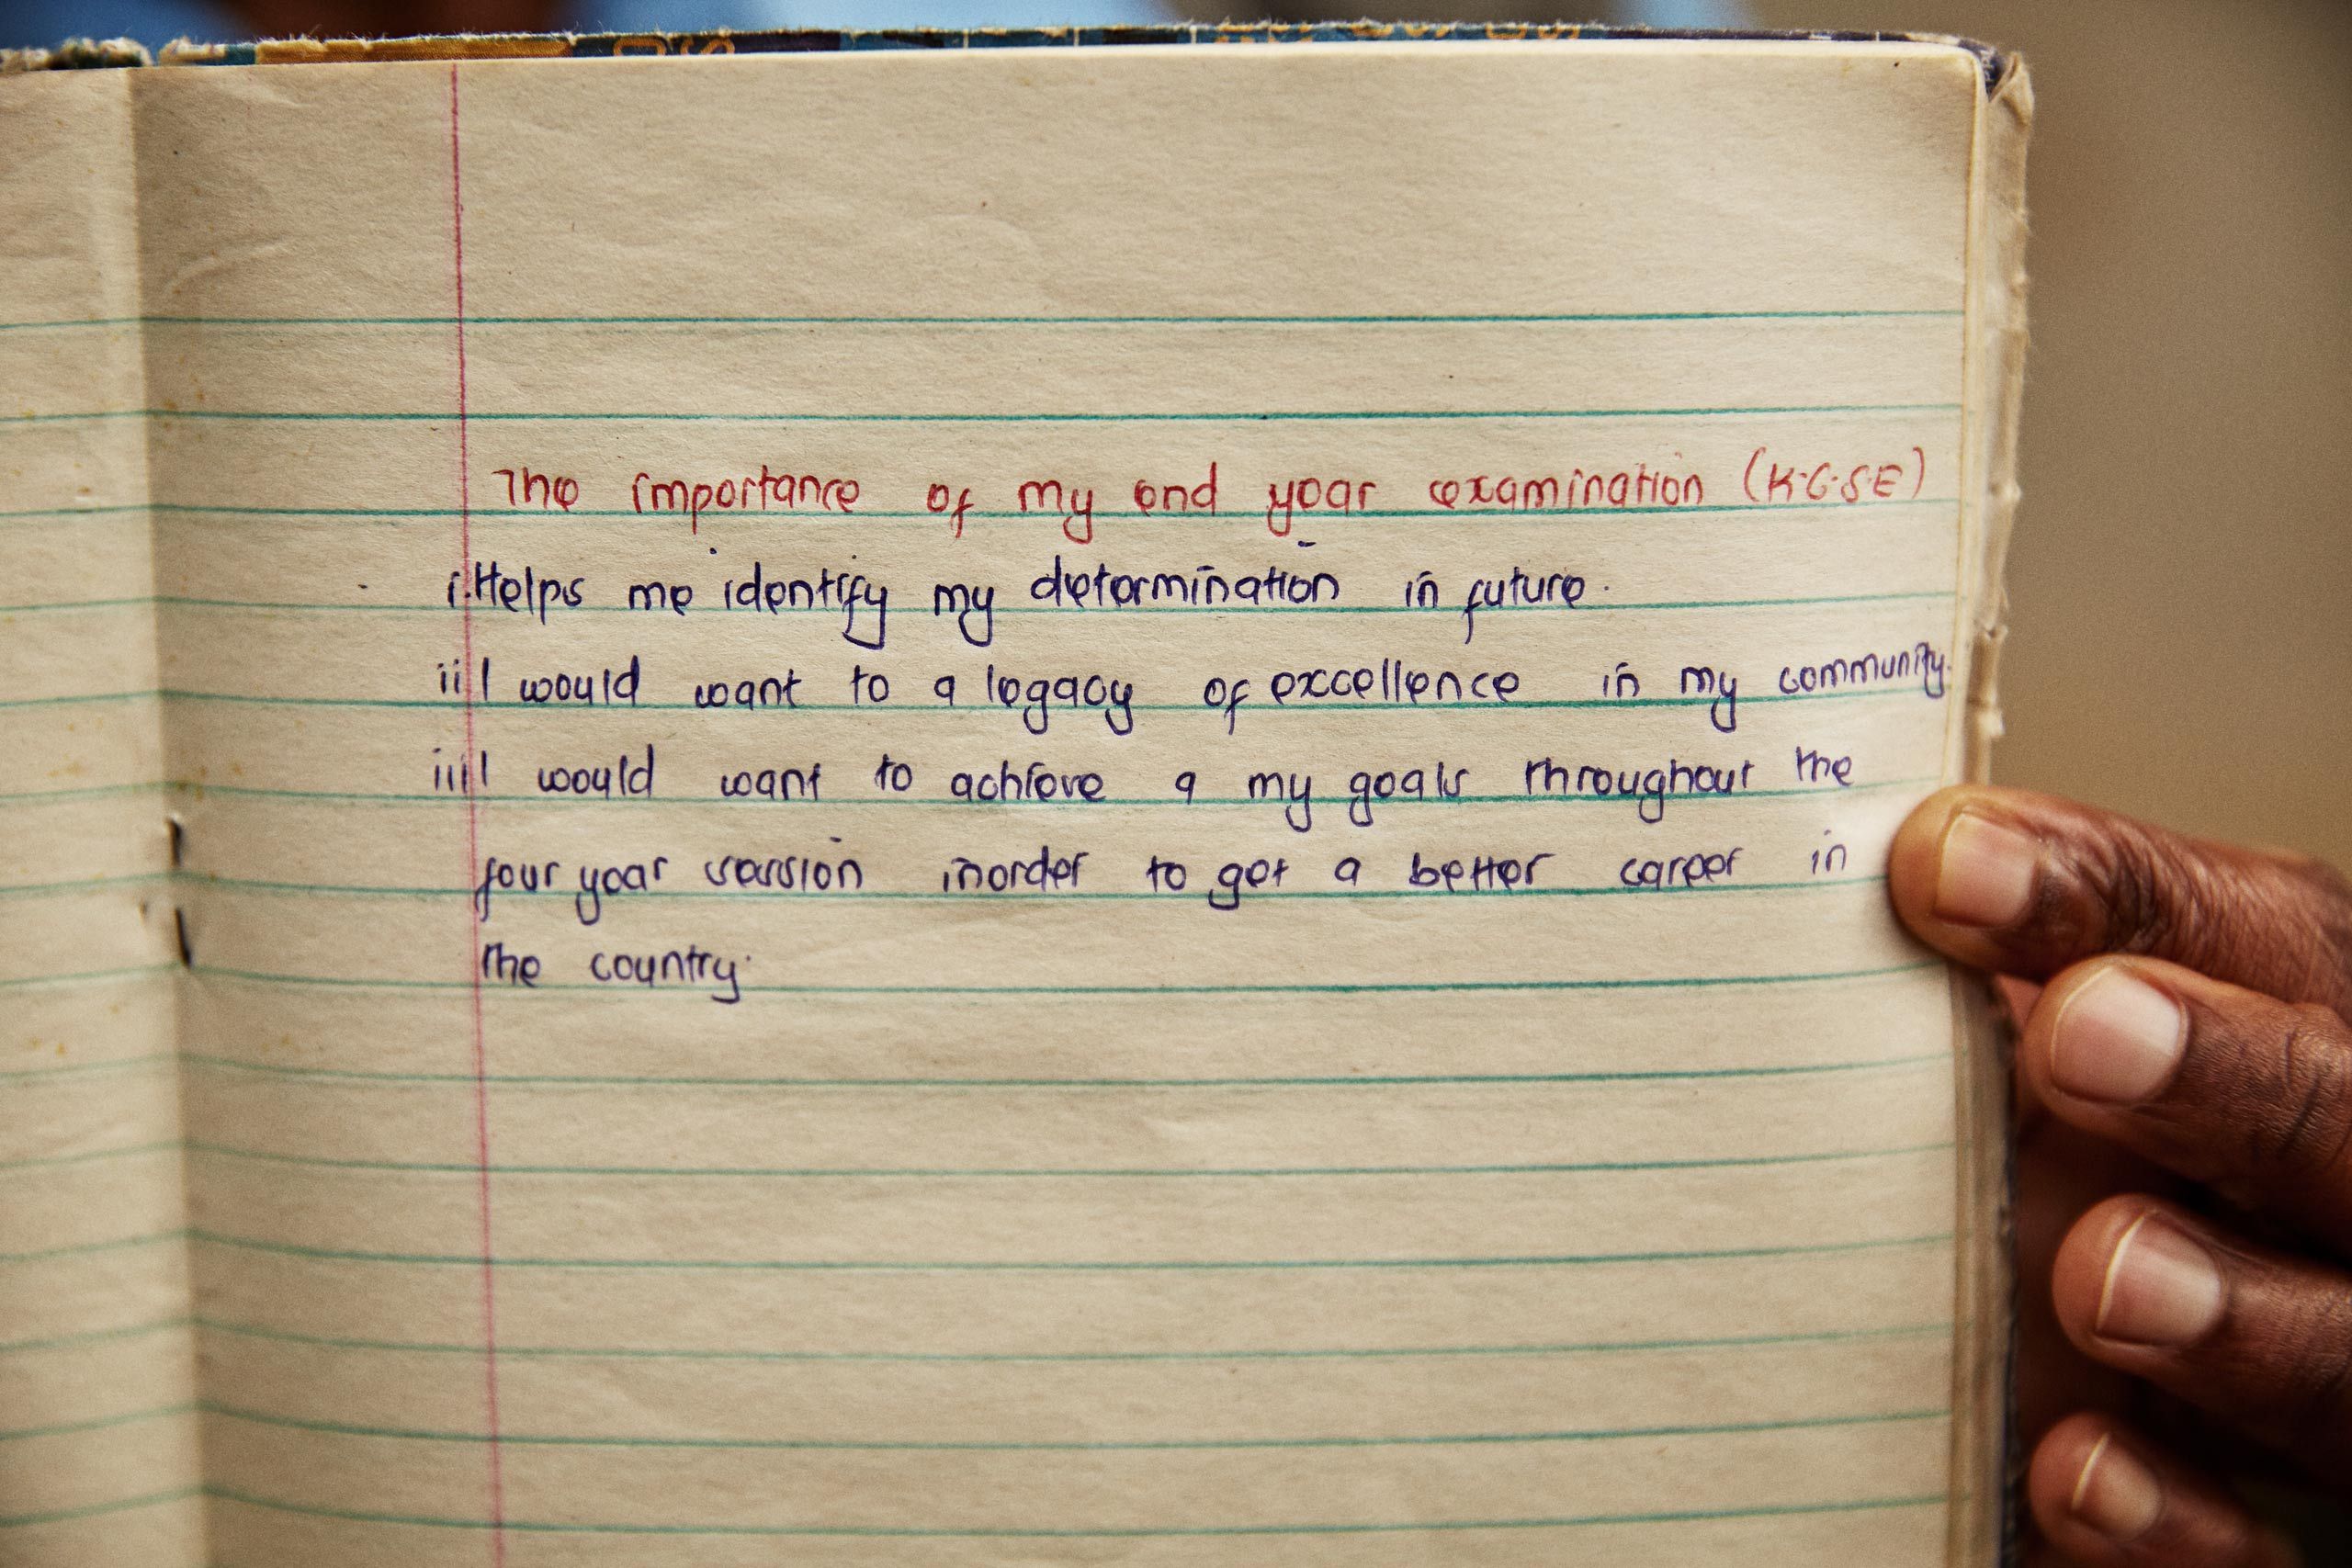 The importance of my end year examination (K.C.S.E)
i. Helps me identify my determination in future.
ii I would want to a legacy of excellence in my community.
iii I would want to achieve a my goals throughout the
four year session inorder to get a better career in
the country.